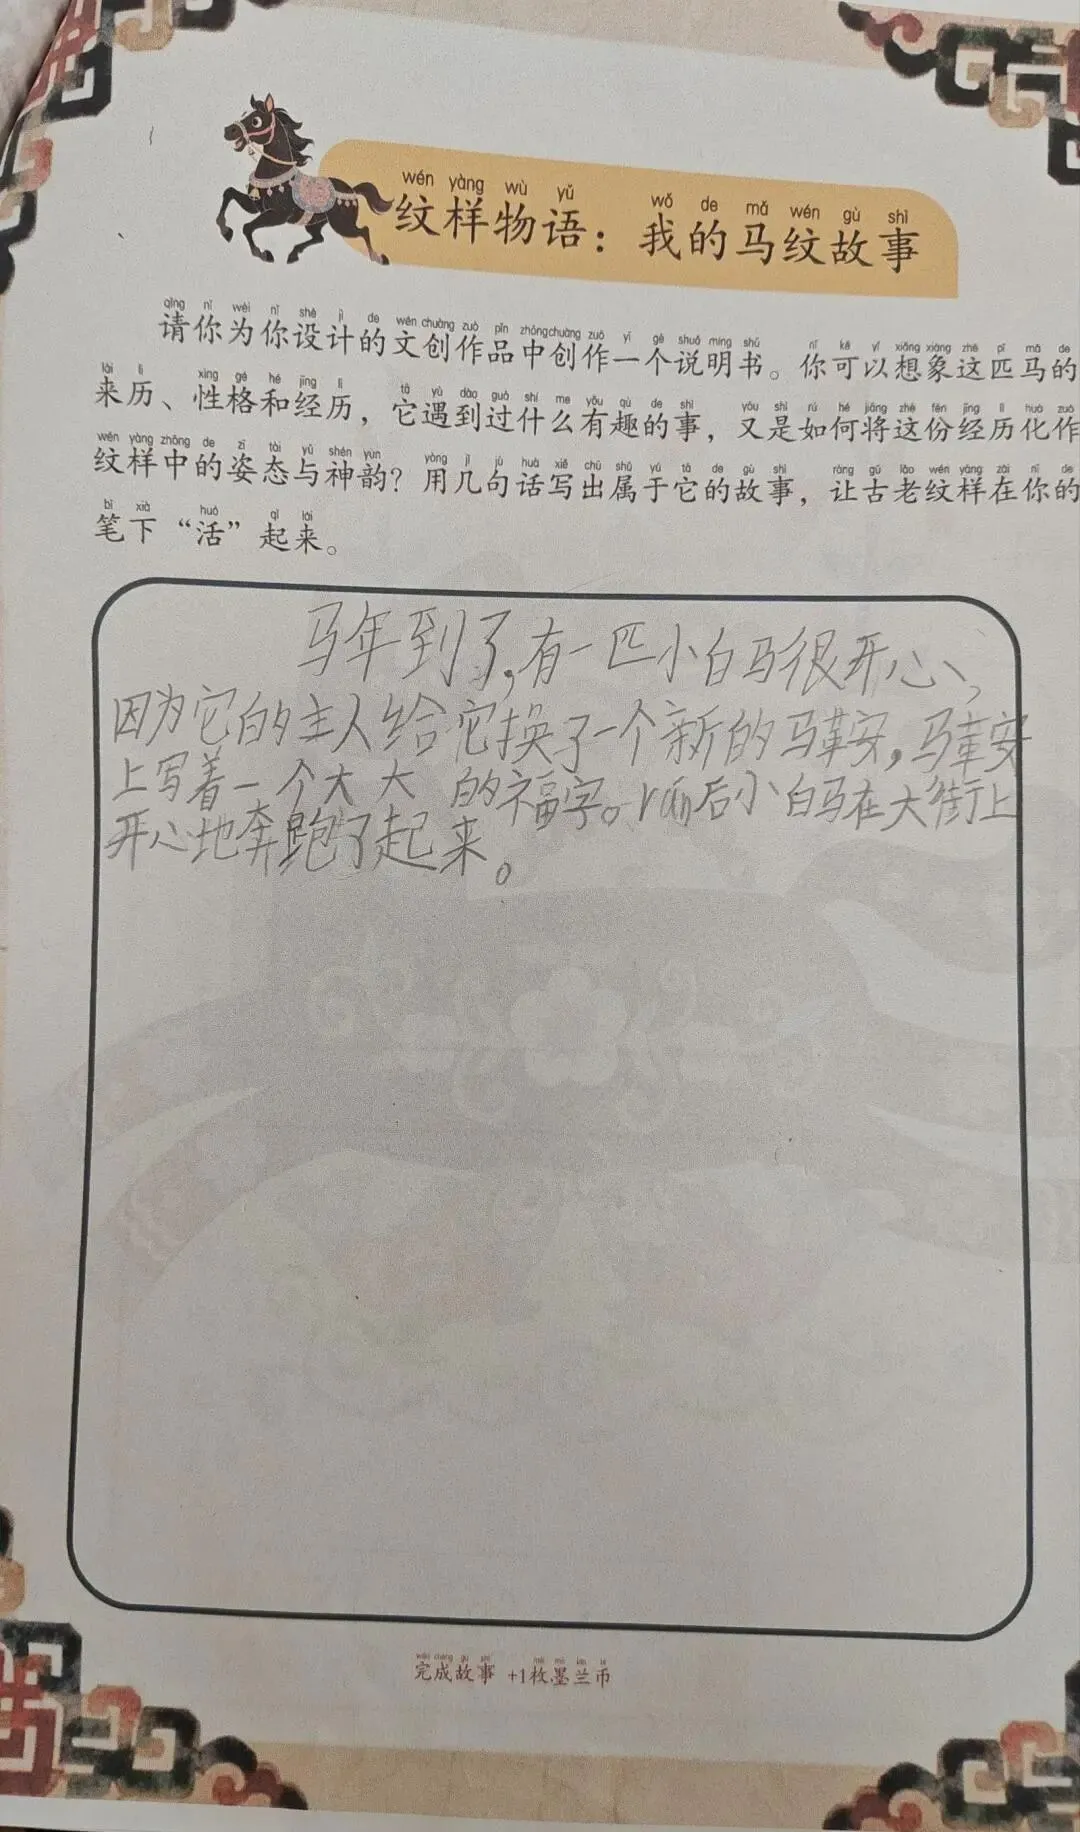 wén yàng wù yǔ wǒ de mǎ wén gù shì
纹样物语：我的马纹故事
请你为你设计的文创作品中创作一个说明书。你可以想象这匹马的
来历、性格和经历，它遇到过什么有趣的事，又是如何将这份经历化作
纹样中的姿态与神韵？用几句话写出属于它的故事，让古老纹样在你的
笔下“活”起来。
马年到了，有一匹小白马很开心，
因为它的主人给它换了一个新的马鞍，马鞍
上写着一个大大的福字。rán后小白马在大街上
开心地奔跑了起来。
完成故事 +1枚墨兰币